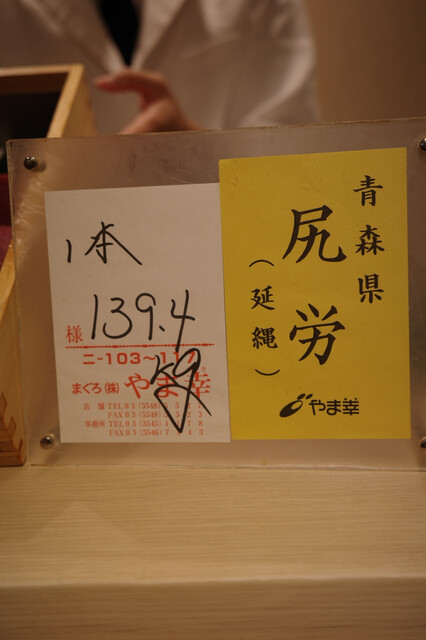 1本
139.4
様
ニ-103~117
まぐろ(株)やま幸
店舗 TEL 03 (3548)
FAX 03 (3548)
事務所 TEL 03 (3545)
FAX 03 (3546)
青森県
尻労
(延縄)
やま幸